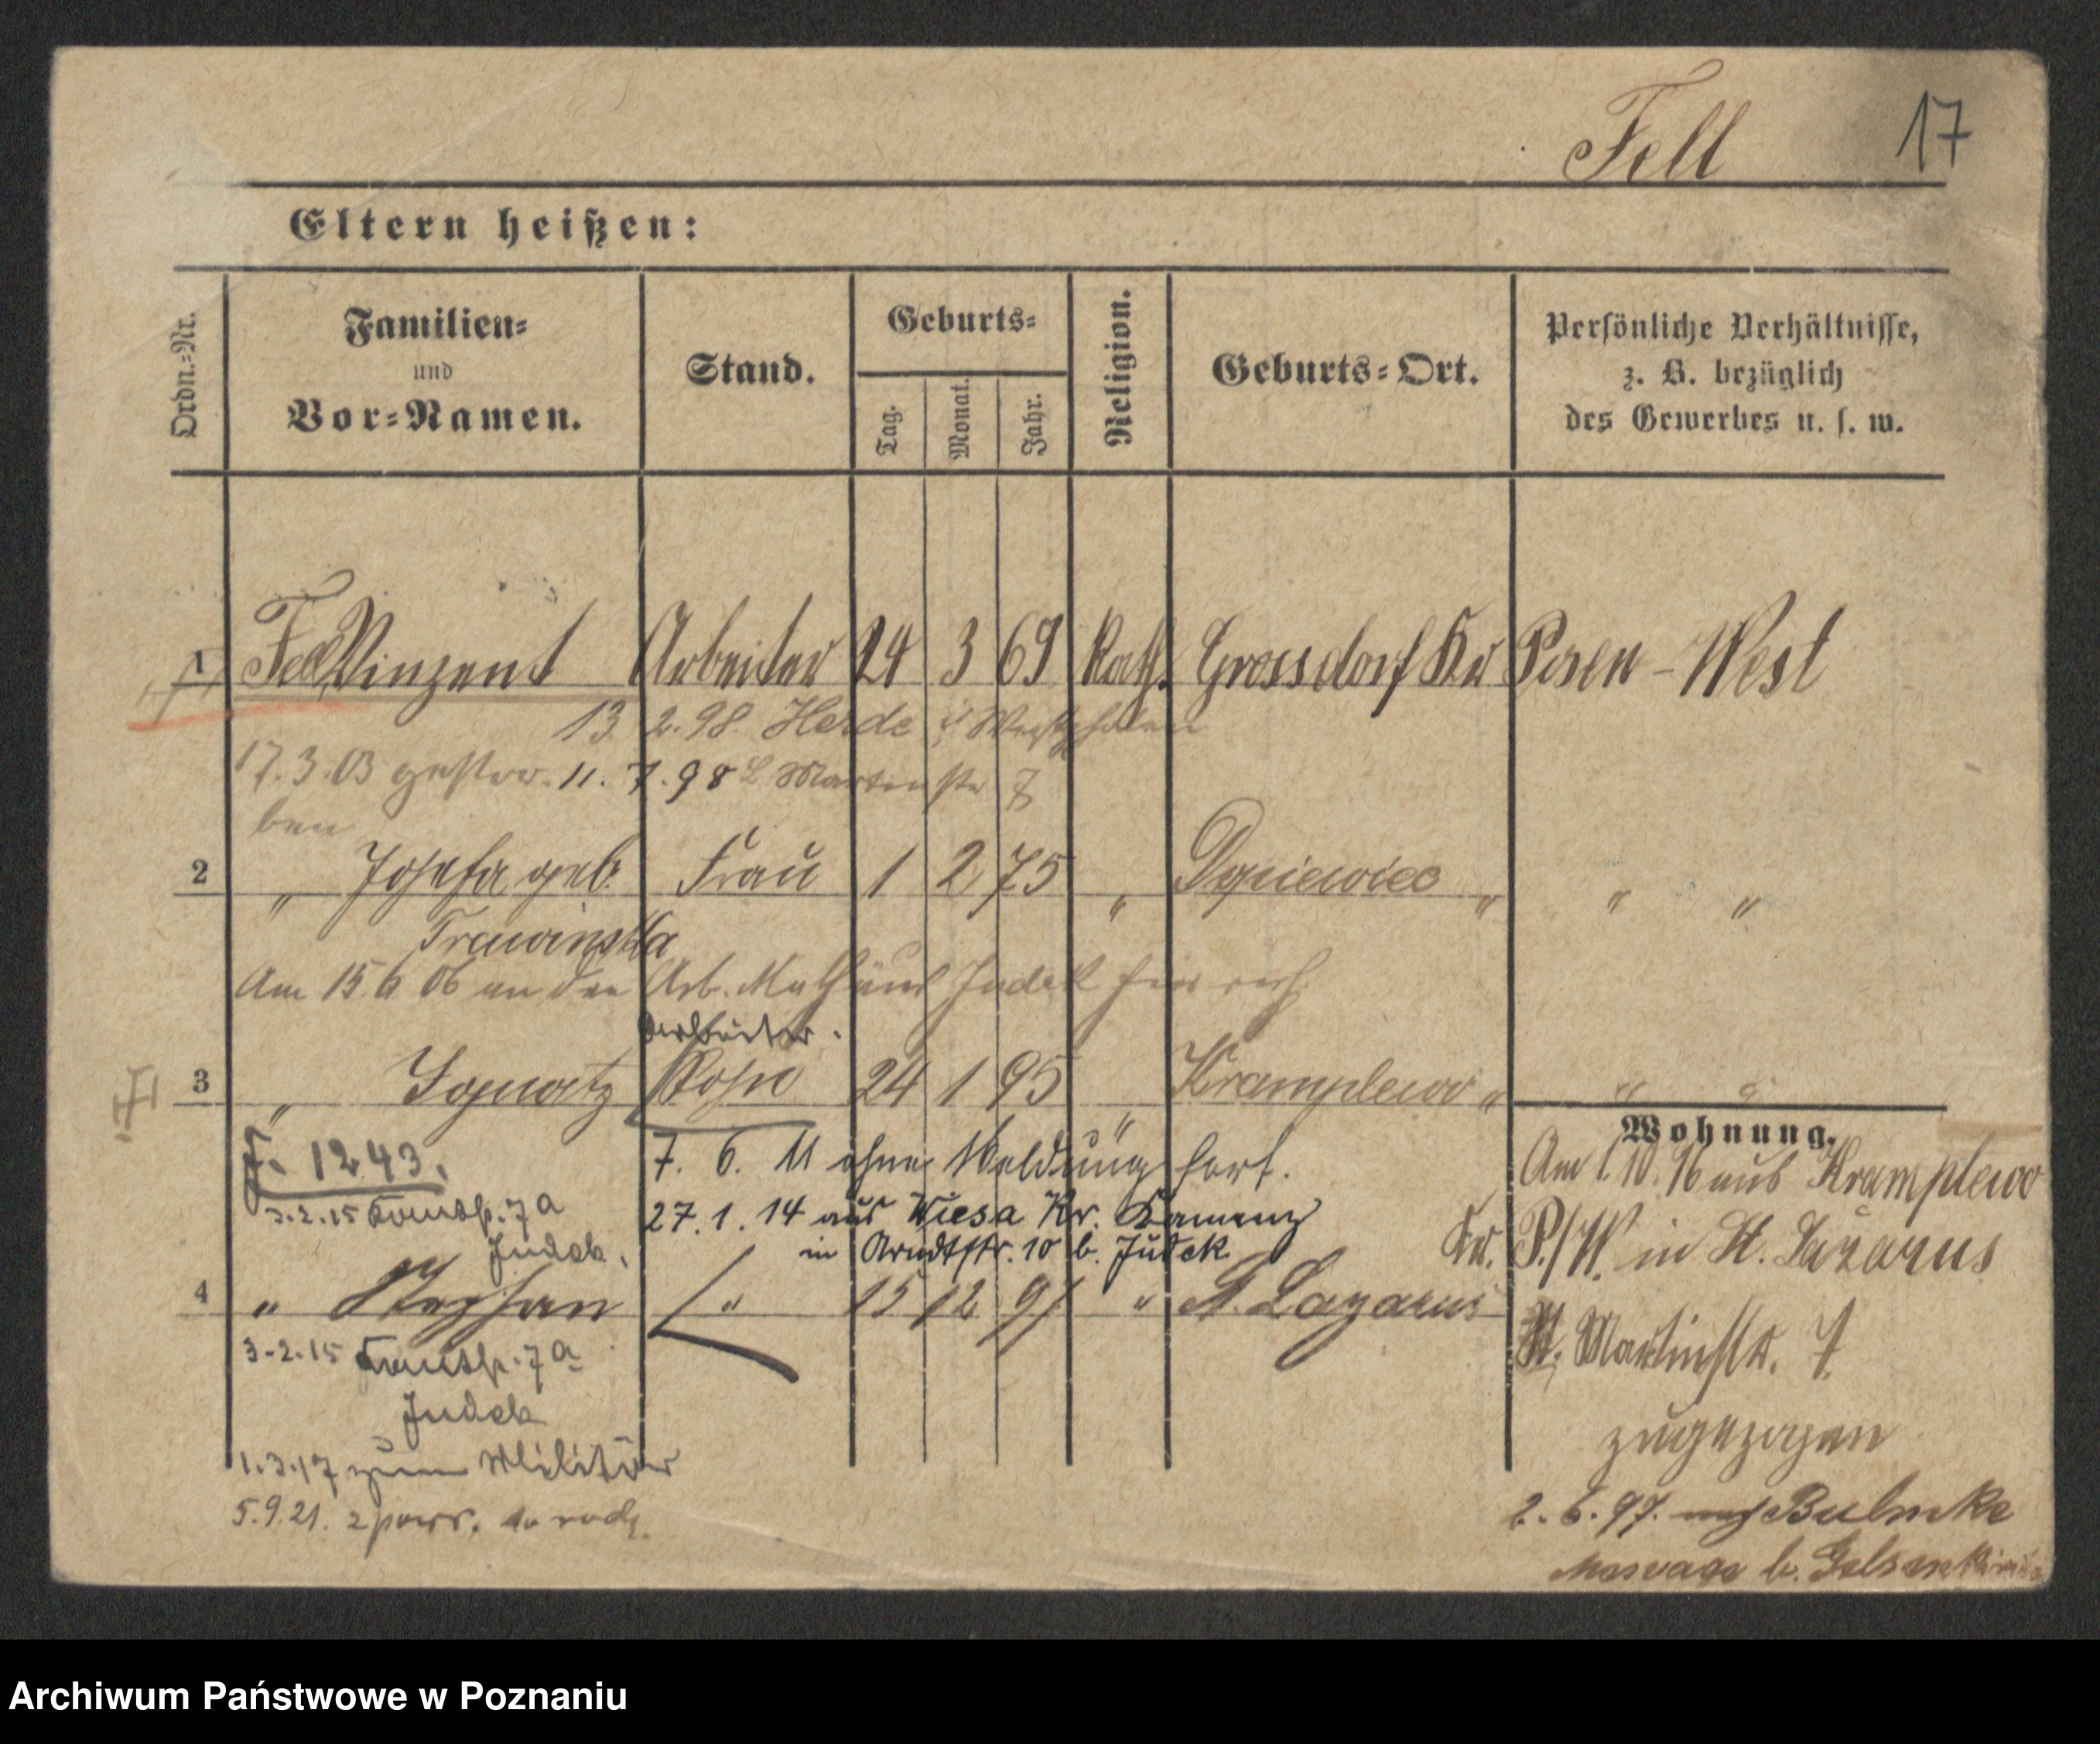 Fell 17
Eltern heißen:
Ordn.=Nr.
Familien=
und
Vor=Namen.
Stand.
Geburts=
Tag.
Monat.
Jahr.
Religion.
Geburts=Ort.
Persönliche Verhältnisse,
z. B. bezüglich
des Gewerbes u. s. w.
1 Fell Vinzent Arbeiter 24 3 69 kath. Grossdorf Kr Posen-West
13. 2. 98. Herde i/ Westphalen
17.3.03 gestor- 11. 7. 98 Martinstr 7
ben
2 " Josefa geb. Frau 1 2 75 " " " "
Am 15 6 06 an den Arb. Mathäus Judek
Arbeiter.
3 " Ignatz Sohn 24 1 95 " Kramplewo " " "
F. 1243.
7. 6. 11 ohne Meldung fort.
3.2.15 7a
Judek.
27. 1. 14 aus Wiesa Kr. Kamenz
in Arndtstr. 10 b. Judek
4 " Stephan " 15 12 97 " St. Lazarus
3-2-15 7a
Judek
1.3.17 zum Militär
5.9.21. z powr. do rodz.
Wohnung.
Am 1.10.96 aus Kramplewo
Kr. P./W. in St. Lazarus
St. Martinstr. 7
zugezogen
2. 6. 97. nach Bulmke
b. Gelsenkirchen